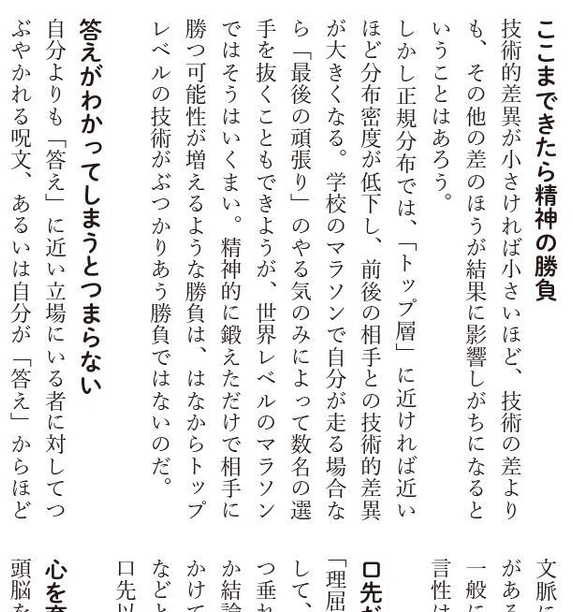 ここまできたら精神の勝負
技術的差異が小さければ小さいほど、技術の差より
も、その他の差のほうが結果に影響しがちになると
いうことはあろう。
しかし正規分布では、「トップ層」に近ければ近い
ほど分布密度が低下し、前後の相手との技術的差異
が大きくなる。学校のマラソンで自分が走る場合な
ら「最後の頑張り」のやる気のみによって数名の選
手を抜くこともできようが、世界レベルのマラソン
ではそうはいくまい。精神的に鍛えただけで相手に
勝つ可能性が増えるような勝負は、はなからトップ
レベルの技術がぶつかりあう勝負ではないのだ。
答えがわかってしまうとつまらない
自分よりも「答え」に近い立場にいる者に対してつ
ぶやかれる呪文、あるいは自分が「答え」からほど
文脈に
がある
一般に
言性は
口先だ
「理屈
して、
つ垂れ
か結論
かけて
などと
口先以
心を育
頭脳を